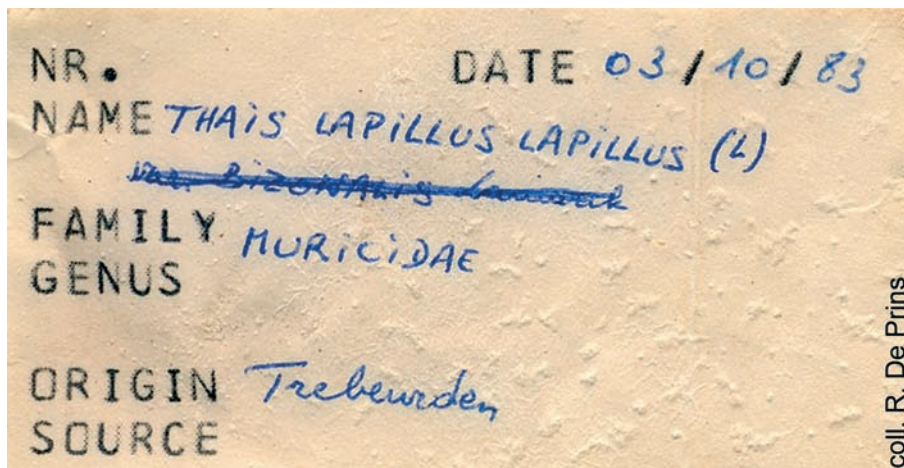 NR. DATE 03/10/83
NAME THAIS LAPILLUS LAPILLUS (L)
var. BIZONALIS Lamarck
FAMILY MURICIDAE
GENUS
ORIGIN Trebeurden
SOURCE
coll. R. De Prins